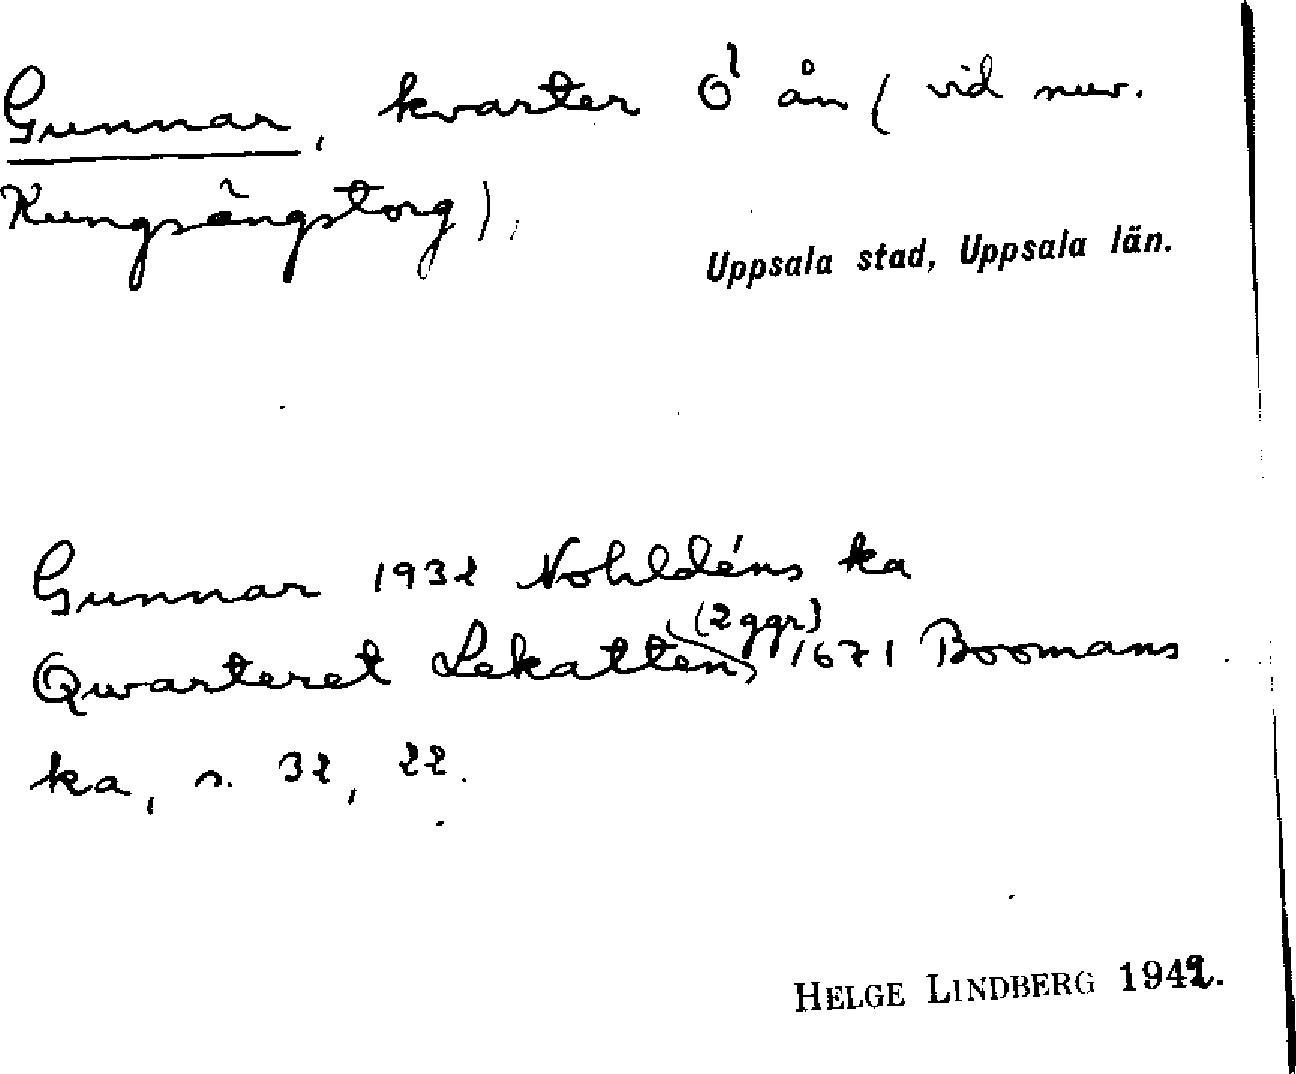 Gunnar, kvarter Ö ån (vid nuv.
Kungsängstorg),
Uppsala stad, Uppsala län.
Gunnar 1932 Nohldéns ka
(2 ggr)
Qwarteret Lekatten 1671 Boomans
ka, s. 32, 22.
HELGE LINDBERG 1942.